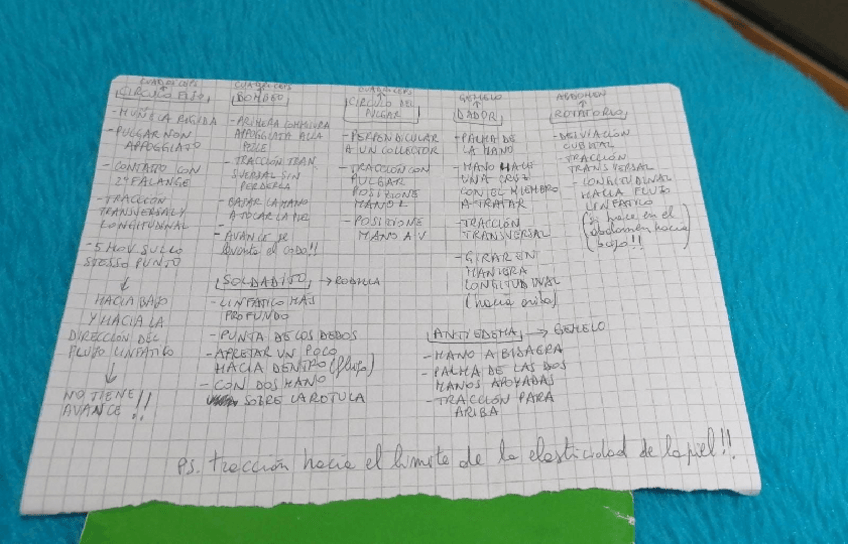 CUADRICEPS
CIRCULO FIJO
- MUÑECA RIGIDA
- PULGAR NON
APPOGGIATO
- CONTATTO CON
2ª FALANGE
- TRACCIÓN
TRANSVERSAL Y
LONGITUDINAL
- 5 MOV SULLO
STESSO PUNTO
↓
HACIA BAJO
Y HACIA LA
DIRECCIÓN DEL
FLUJO LINFATICO
↓
NO TIENE
AVANCE!!
CUADRICEPS
BOMBEO
- PRIMERA COMMISURA
APPOGGIATA ALLA
PELLE
- TRACCIÓN TRAN
SVERSAL SIN
PERDERLA
- BAJAR LA MANO
A TOCAR LA PIEL
- AVANCE se
levanta el codo!!
CUADRICEPS
CIRCULO DEL
PULGAR
- PERPENDICULAR
A UN COLLECTOR
- TRACCIÓN CON
PULGAR
POSIZIONE
MANO L
- POSIZIONE
MANO A V
GEMELO
↑
DADOR
- PALMA DE
LA MANO
- MANO HACE
UNA CRUZ
CON EL MIEMBRO
A TRATAR
- TRACCIÓN
TRANSVERSAL
- GIRAR EN
MANIERA
LONGITUDINAL
(hacia arriba)
ABDOMEN
↑
ROTATORIO
- DESVIACIÓN
CUBITAL
- TRACCIÓN
TRANSVERSAL
- LONGITUDINAL
HACIA FLUJO
LINFATICO
(si hace en el
abdomen hacia
bajo!!)
SOLDADITO → RODILLA
- LINFATICO MÁS
PROFUNDO
- PUNTA DE LOS DEDOS
- APRETAR UN POCO
HACIA DENTRO (flujo)
- CON DOS MANO
SOBRE LA ROTULA
ANTIEDEMA → GEMELO
- MANO A BISAGRA
- PALMA DE LAS DOS
MANOS APOYADAS
- TRACCIÓN PARA
ARIBA
P.S. tracción hacia el limite de la elasticidad de la piel!!